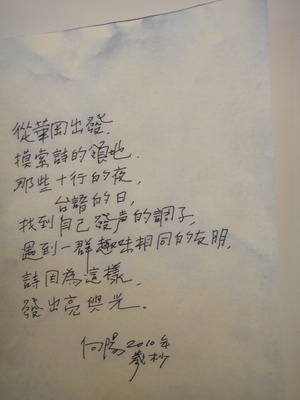 從華岡出發.
摸索詩的領地.
那些十行的夜,
台語的日,
找到自己發声的調子,
遇到一群趣味相同的友朋,
詩因為這樣,
發出亮與光.
向陽 2010年
歲杪